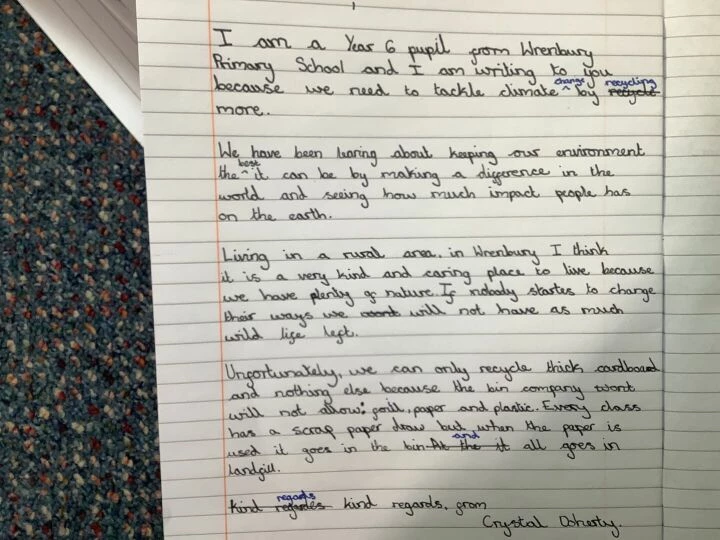 I am a Year 6 pupil from Wrenbury
Primary School and I am writing to you
because we need to tackle climate ^change by recycle recycling
more.
We have been learing about keeping our environment
the ^best it can be by making a difference in the
world and seeing how much impact people has
on the earth.
Living in a rural area, in Wrenbury I think
it is a very kind and caring place to live because
we have plenty of nature. If nobody startes to change
their ways we wont will not have as much
wild life left.
Unfortunately, we can only recycle thick cardboard
and nothing else because the bin company wont
will not allow: foil, paper and plastic. Every class
has a scrap paper draw but when the paper is
used it goes in the bin. At the and it all goes in
landfill.
Kind regardes regards kind regards, from
Crystal Doherty.